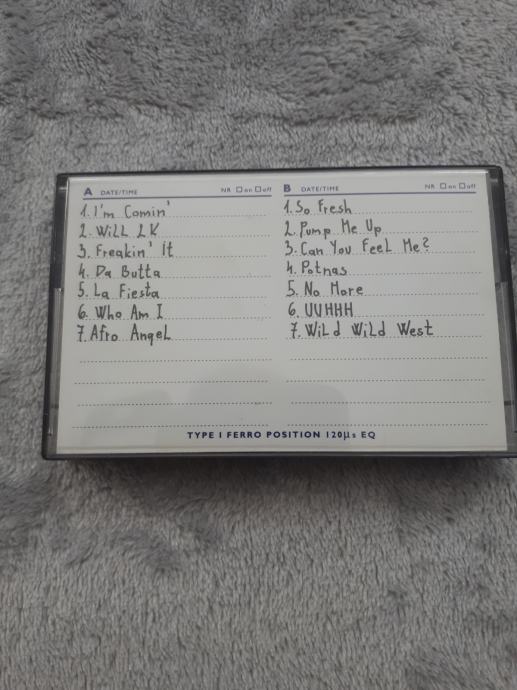 A DATE/TIME NR □ on □ off
1. I'm Comin'
2. Will 2K
3. Freakin' It
4. Da Butta
5. La Fiesta
6. Who Am I
7. Afro Angel
B DATE/TIME NR □ on □ off
1. So Fresh
2. Pump Me Up
3. Can You Feel Me?
4. Potnas
5. No More
6. UUHHH
7. Wild Wild West
TYPE I FERRO POSITION 120µs EQ